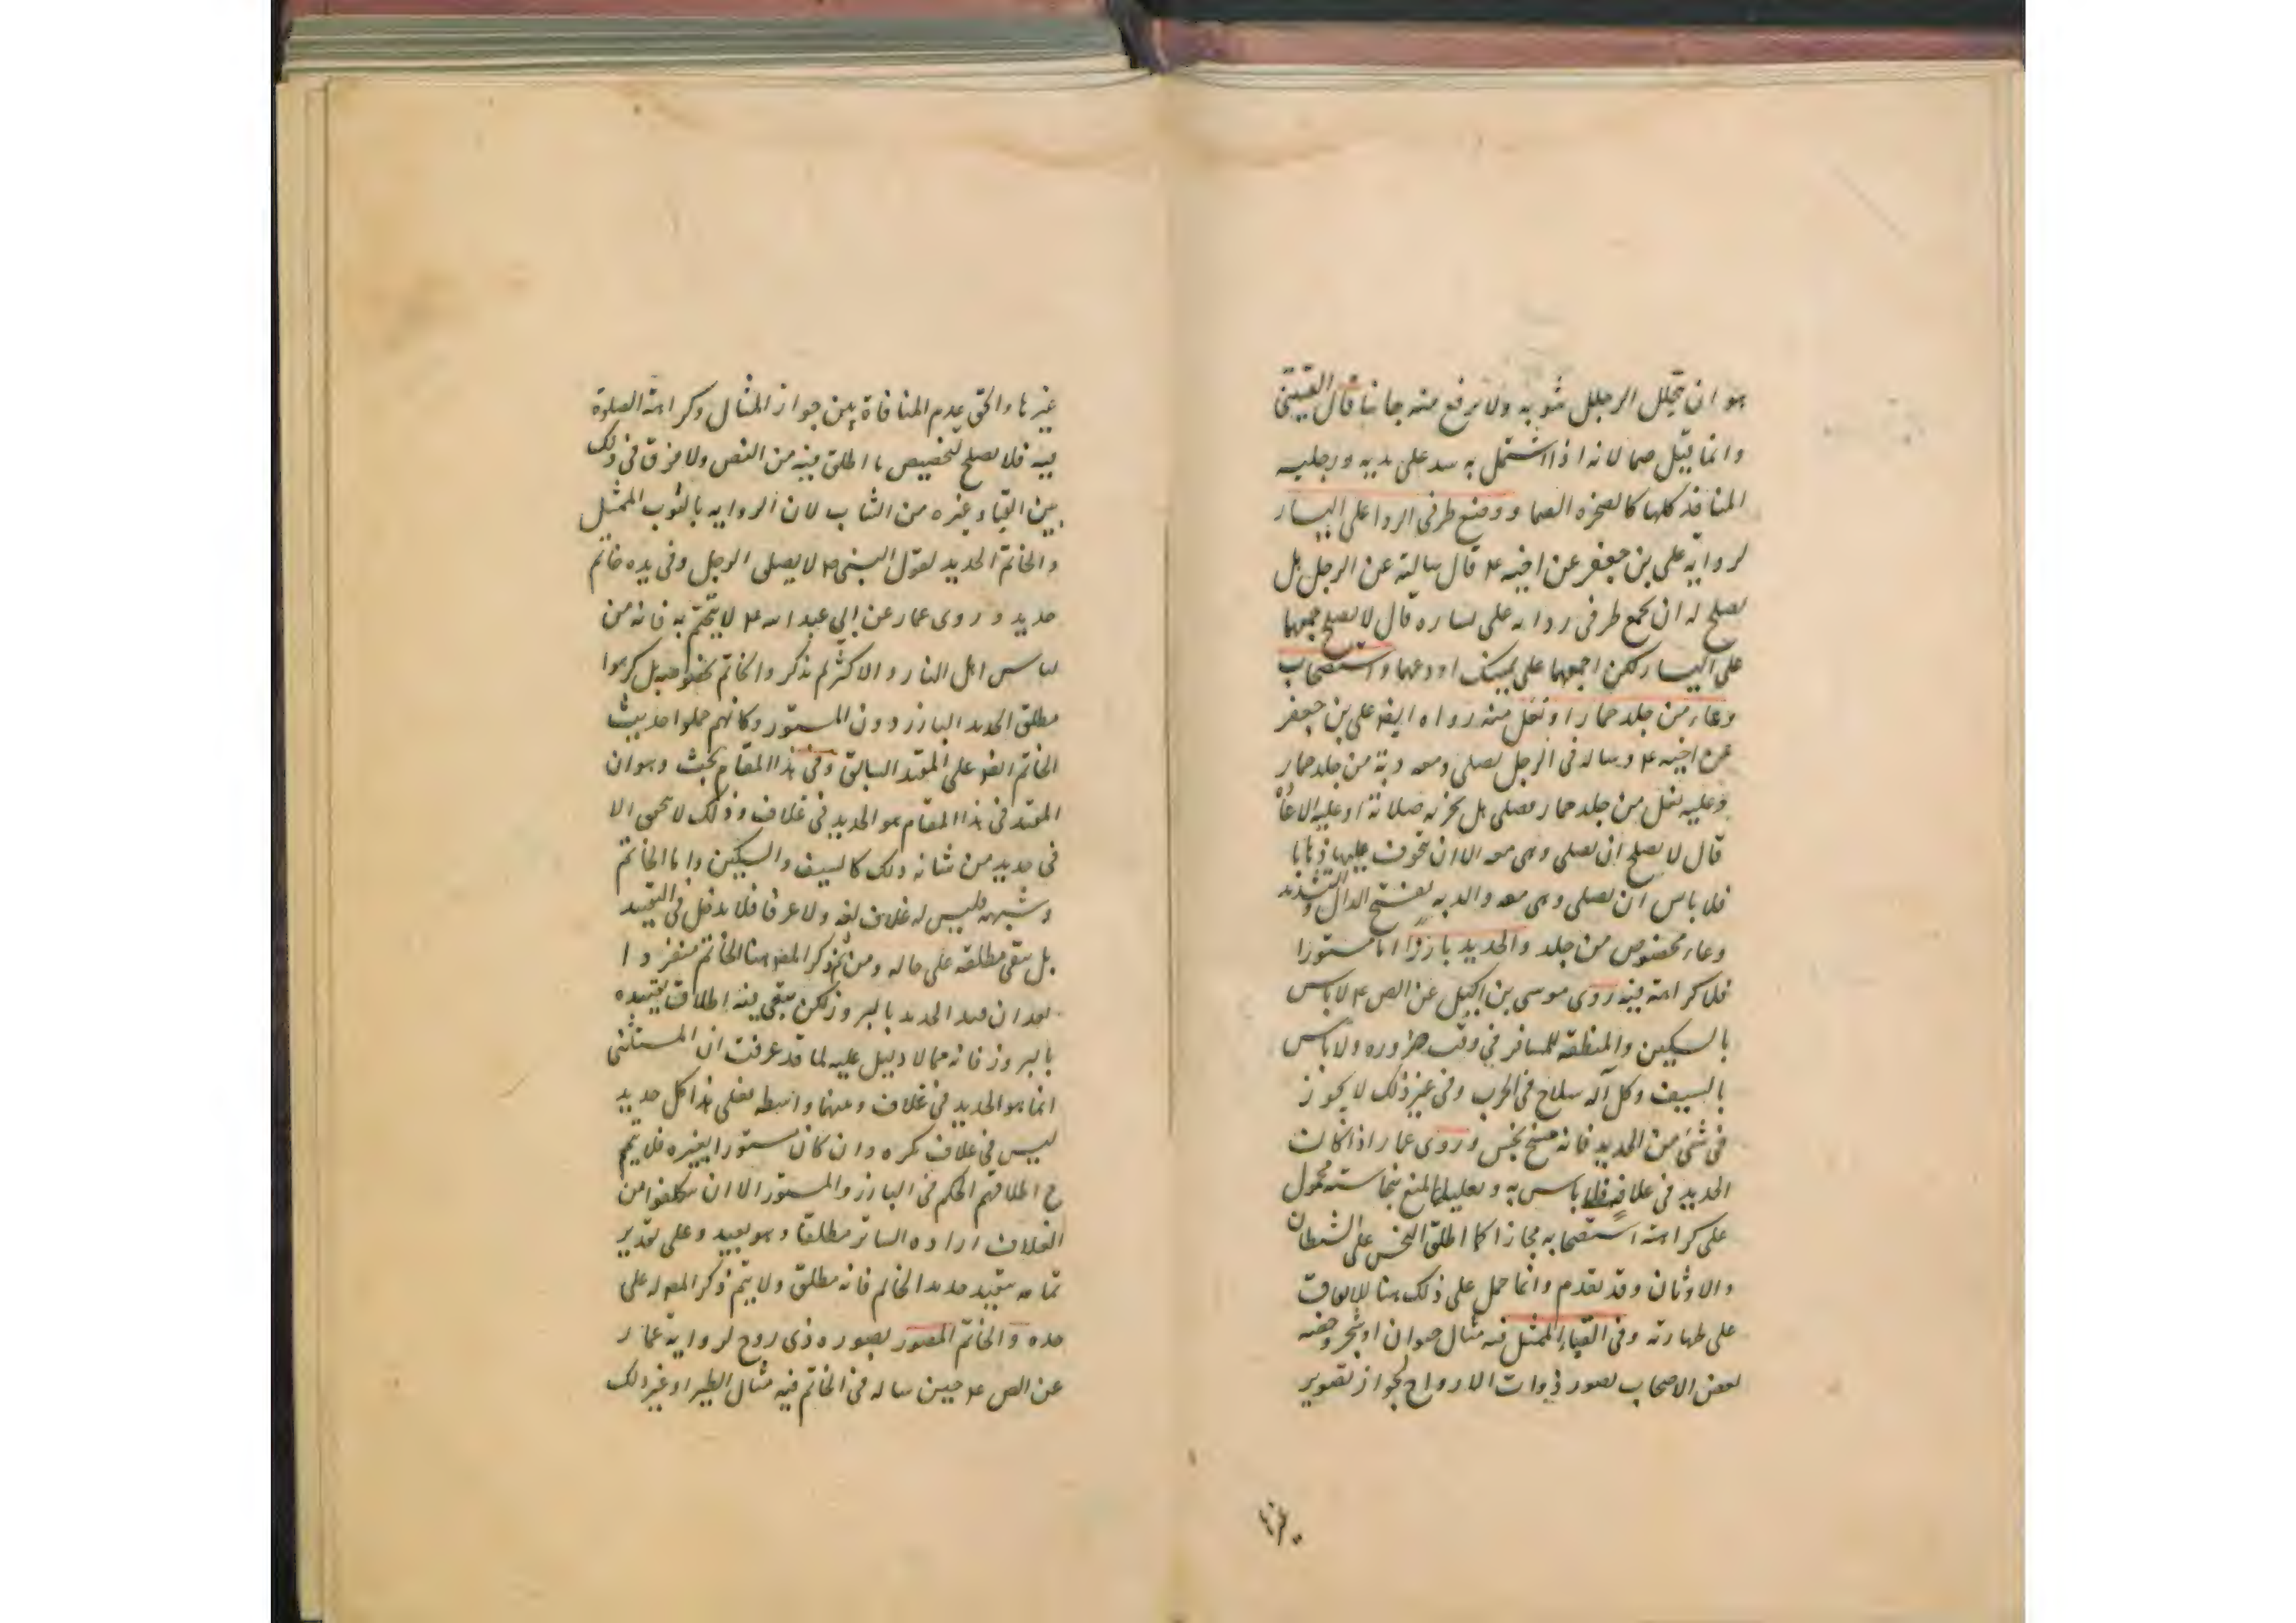 هو ان يجلل الرجل بثوبه ولا يرفع منه جانبا قال القتيبى
وانما قيل صما لانه اذا اشتمل به سد على يديه ورجليه
المنافذ كلها كالصخره الصما ووضع طرفى الردا على اليسار
لروايه على بن جعفر عن اخيه ع قال سالته عن الرجل هل
يصلح له ان يجمع طرفى ردائه على يساره قال لا يصلح جمعهما
على اليسار لكن اجمعهما على يمينك او دعهما واستصحاب
وعاء من جلد حمار او نعل منه رواه ايضا على بن جعفر
عن اخيه ع وساله فى الرجل يصلى ومعه دبة من جلد حمار
وعليه نعل من جلد حمار فصلى هل يجزئه صلاته او عليه الاعادة
قال لا يصلح ان يصلى وهى معه الا ان يتخوف عليها ذهابا
فلا باس ان يصلى وهى معه والدبه بفتح الدال والتشديد
وعاء مخصوص من جلد والحديد بارزا اما مستورا
فلا كراهة فيه روى موسى بن اكيل عن الص ع لا باس
بالسكين والمنطقه للمسافر فى وقت ضروره ولا باس
بالسيف وكل آله سلاح فى الحرب وفى غير ذلك لا يجوز
فى شئ من الحديد فانه مسخ نجس وروى عمار اذا كان
الحديد فى غلافه فلا باس به وتعليل المنع بنجاسته محمول
على كراهة استصحابه مجازا كما اطلق النجس على الشيطان
والاوثان وقد تقدم وانما حمل على ذلك هنا للاتفاق
على طهارته وفى القباء الممثل فيه مثال حيوان او شجر وخصه
بعض الاصحاب بصور ذوات الارواح لجواز تصوير
غيرها
غيرها والحق عدم المنافاة بين جواز المثال وكراهة الصلوة
فيه فلا يصلح لتخصيص ما اطلق فيه من النص ولا فرق فى ذلك
بين القبا وغيره من الثياب لان الروايه بالثوب الممثل
والخاتم الحديد لقول النبى ص لا يصلى الرجل وفى يده خاتم
حديد وروى عمار عن ابي عبد الله ع لا يتختم به فانه من
لباس اهل النار والاكثر لم يذكروا الخاتم بخصوصه بل كرهوا
مطلق الحديد البارز دون المستور وكانهم حملوا حديث
الخاتم ايضا على المقيد السابق وفى هذا المقام بحث وهو ان
المقيد فى هذا المقام هو الحديد فى غلاف وذلك لا يتحقق الا
فى حديد من شانه ذلك كالسيف والسكين واما الخاتم
وشبهه فليس له غلاف لغه ولا عرفا فلا يدخل فى التقييد
بل يبقى مطلقه على حاله ومن ثم ذكر المص هنا الخاتم منفردا
بعد ان قيد الحديد بالبروز لكن يبقى فيه اطلاق تقييده
بالبروز فانه مما لا دليل عليه لما قد عرفت ان المستثنى
انما هو الحديد فى غلاف وبينهما واسطه فعلى هذا كل حديد
ليس فى غلاف يكره وان كان مستورا بغيره فلا يتم
ح اطلاقهم الحكم فى البارز والمستور الا ان يتكلفوا من
الغلاف اراده الساتر مطلقا وهو بعيد وعلى تقدير
تمامه يتقيد حديد الخاتم فانه مطلق ولا يتم ذكر المص له على
حده والخاتم المصور بصوره ذى روح لرواية عمار
عن الص ع حين ساله فى الخاتم فيه مثال الطير او غير ذلك